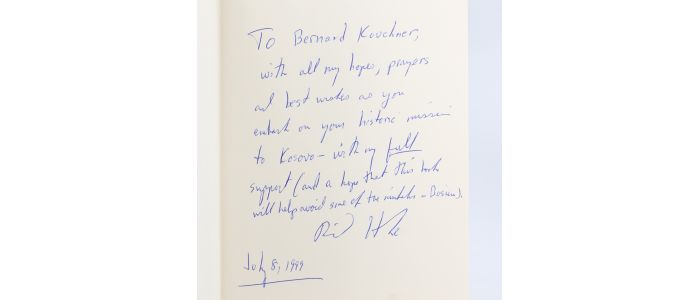 To Bernard Kouchner,
with all my hopes, prayers
and best wishes as you
embark on your historic mission
to Kosovo – with my full
support (and a hope that this book
will help avoid some of the mistakes in Bosnia).
July 8, 1999